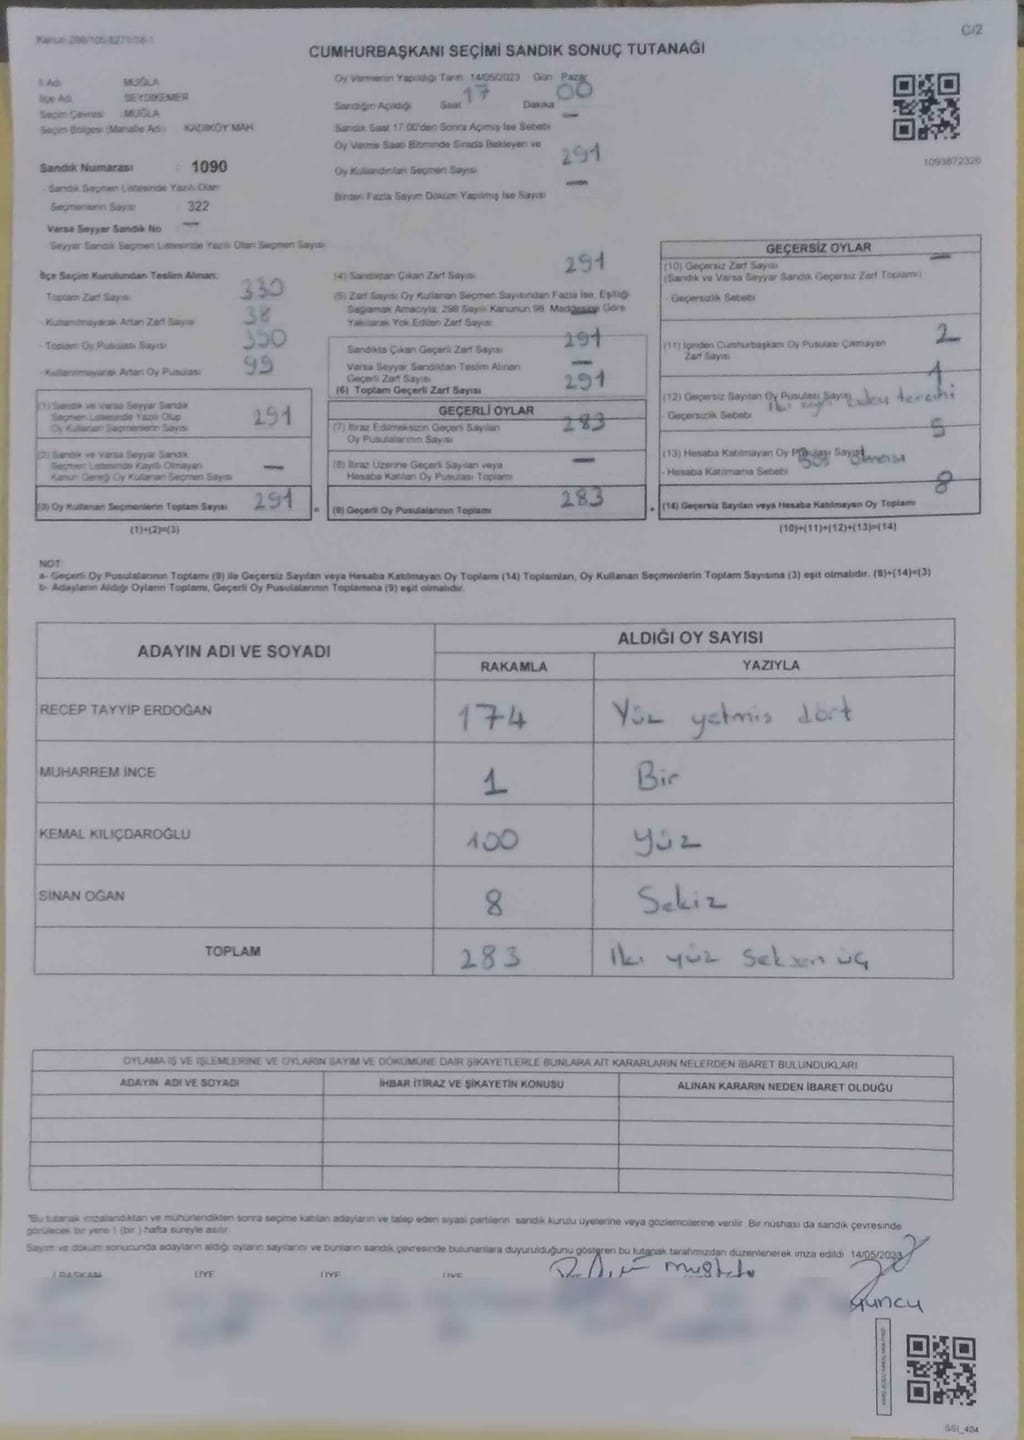 Kanun:298/105-
C/2
CUMHURBAŞKANI SEÇİMİ SANDIK SONUÇ TUTANAĞI
İl Adı : MUĞLA
İlçe Adı : SEYDİKEMER
Seçim Çevresi : MUĞLA
Seçim Bölgesi (Mahalle Adı) KADIKÖY MAH
Sandık Numarası : 1090
Sandık Seçmen Listesinde Yazılı Olan
Seçmenlerin Sayısı 322
Varsa Seyyar Sandık No —
Seyyar Sandık Seçmen Listesinde Yazılı Olan Seçmen Sayısı
Oy Vermenin Yapıldığı Tarih 14/05/2023 Gün Pazar
Sandığın Açıldığı Saat 17 Dakika 00
Sandık Saat 17:00'den Sonra Açılmış İse Sebebi —
Oy Verme Saati Bitiminde Sırada Bekleyen ve
Oy Kullandırılan Seçmen Sayısı 291
Birden Fazla Sayım Döküm Yapılmış İse Sayısı —
1093872326
İlçe Seçim Kurulundan Teslim Alınan:
Toplam Zarf Sayısı 330
- Kullanılmayarak Artan Zarf Sayısı 38
- Toplam Oy Pusulası Sayısı 390
- Kullanılmayarak Artan Oy Pusulası 99
(1) Sandık ve Varsa Seyyar Sandık
Seçmen Listesinde Yazılı Olup
Oy Kullanan Seçmenlerin Sayısı 291
(2) Sandık ve Varsa Seyyar Sandık
Seçmen Listesinde Kayıtlı Olmayan
Kanun Gereği Oy Kullanan Seçmen Sayısı —
(3) Oy Kullanan Seçmenlerin Toplam Sayısı 291
(1)+(2)=(3)
(4) Sandıktan Çıkan Zarf Sayısı 291
(5) Zarf Sayısı Oy Kullanan Seçmen Sayısından Fazla İse, Eşitliği
Sağlamak Amacıyla, 298 Sayılı Kanunun 98. Maddesine Göre
Yakılarak Yok Edilen Zarf Sayısı —
Sandıkta Çıkan Geçerli Zarf Sayısı 291
Varsa Seyyar Sandıktan Teslim Alınan
Geçerli Zarf Sayısı —
(6) Toplam Geçerli Zarf Sayısı 291
GEÇERLİ OYLAR
(7) İtiraz Edilmeksizin Geçerli Sayılan
Oy Pusulalarının Sayısı 283
(8) İtiraz Üzerine Geçerli Sayılan veya
Hesaba Katılan Oy Pusulası Toplamı —
= (9) Geçerli Oy Pusulalarının Toplamı 283
GEÇERSİZ OYLAR
(10) Geçersiz Zarf Sayısı —
(Sandık ve Varsa Seyyar Sandık Geçersiz Zarf Toplamı)
- Geçersizlik Sebebi
(11) İçinden Cumhurbaşkanı Oy Pusulası Çıkmayan
Zarf Sayısı 2
(12) Geçersiz Sayılan Oy Pusulası Sayısı 1
- Geçersizlik Sebebi İki tercihi
(13) Hesaba Katılmayan Oy Pusulası Sayısı 5
- Hesaba Katılmama Sebebi Boş olması
+ (14) Geçersiz Sayılan veya Hesaba Katılmayan Oy Toplamı 8
(10)+(11)+(12)+(13)=(14)
NOT:
a- Geçerli Oy Pusulalarının Toplamı (9) ile Geçersiz Sayılan veya Hesaba Katılmayan Oy Toplamı (14) Toplamları, Oy Kullanan Seçmenlerin Toplam Sayısına (3) eşit olmalıdır. (9)+(14)=(3)
b- Adayların Aldığı Oyların Toplamı, Geçerli Oy Pusulalarının Toplamına (9) eşit olmalıdır.
ADAYIN ADI VE SOYADI
ALDIĞI OY SAYISI
RAKAMLA YAZIYLA
RECEP TAYYIP ERDOĞAN 174 Yüz yetmiş dört
MUHARREM İNCE 1 Bir
KEMAL KILIÇDAROĞLU 100 Yüz
SİNAN OĞAN 8 Sekiz
TOPLAM 283 İki yüz seksen üç
OYLAMA İŞ VE İŞLEMLERİNE VE OYLARIN SAYIM VE DÖKÜMÜNE DAİR ŞİKAYETLERLE BUNLARA AİT KARARLARIN NELERDEN İBARET BULUNDUKLARI
ADAYIN ADI VE SOYADI İHBAR İTİRAZ VE ŞİKAYETİN KONUSU ALINAN KARARIN NEDEN İBARET OLDUĞU
*Bu tutanak imzalandıktan ve mühürlendikten sonra seçime katılan adayların ve talep eden siyasi partilerin sandık kurulu üyelerine veya gözlemcilerine verilir. Bir nüshası da sandık çevresinde
görülecek bir yere 1 (bir) hafta süreyle asılır.
Sayım ve döküm sonucunda adayların aldığı oyların sayılarını ve bunların sandık çevresinde bulunanlara duyurulduğunu gösteren bu tutanak tarafımızdan düzenlenerek imza edildi. 14/05/2023
BAŞKAN ÜYE ÜYE ÜYE Mustafa
SSI_404